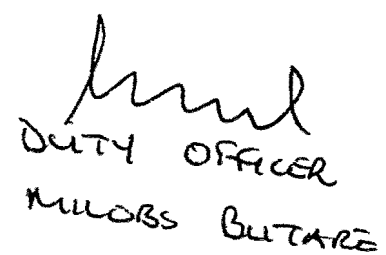 DUTY OFFICER
MILOBS BUTARE